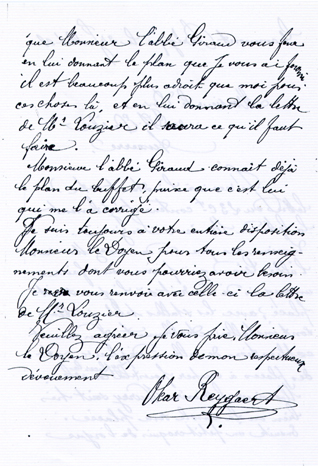 que Monsieur l'abbé Giraud vous fera
en lui donnant le plan que je vous ai fourni
il est beaucoup plus adroit que moi pour
ces choses là, et en lui donnant la lettre
de Mr Louzier il saura ce qu'il faut
faire.
Monsieur l'abbé Giraud connait déjà
le plan du buffet, puisque c'est lui
qui me l'a corrigé.
Je suis toujours à votre entière disposition
Monsieur le Doyen, pour tous les renseig-
nements dont vous pourriez avoir besoin.
Je vous renvoie avec celle-ci la lettre
de Mr Louzier.
Veuillez agréer, je vous prie, Monsieur
le Doyen, l'expression de mon respectueux
dévouement
Oscar Reygaert